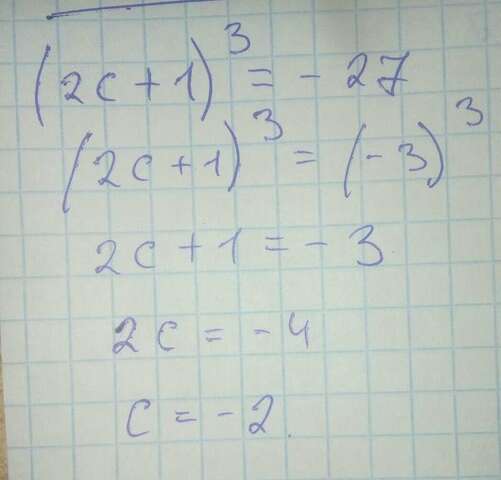 (2c+1)³ = - 27
(2c+1)³ = (-3)³
2c+1 = - 3
2c = -4
c = -2.